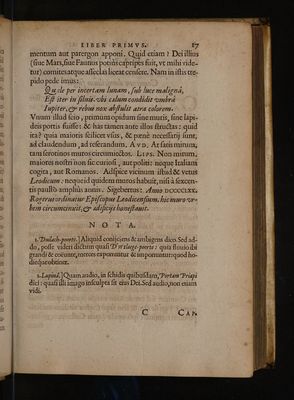 LIBER PRIMVS. 17
mentum aut parergon apponi. Quid etiam? Dei illius
(siue Mars, siue Faustus potius capripes fuit, vt mihi vide-
tur) comites atque asseclas liceat censere. Nam in istis tre-
pido pede imus:
Quale per incertam lunam, sub luce malignâ,
Est iter in siluis: vbi cælum condidit vmbrâ
Iupiter, & rebus nox abstulit atra colorem.
Vnum illud scio, primum opidum sine muris, sine lapi-
deis portis fuisse: & has tamen ante illos structas: quid
ita? quia maioris scilicet vsus, & pæne necessarij sunt,
ad claudendum, ad reserandum. AVD. At satis mirum,
tam serotinos mutos circumiectos. LIPS. Non mirum,
maiores nostri non sic curiosi, aut politi: neque Italiam
cogita, aut Romanos. Adspice vicinum istud & vetus
Leodicum: nequeid quidem mutos habuit, nisi à sexcen-
tis paullò amplius annis. Sigebertus: Anno
Rogerus ordinatur Episcopus Leodicensium, hic muro vr-
bem circumcinuit, & adificijs honestauit.
NOTA.
1. Dsulach-poorte.] Aliquid conijciens & ambigens dices Sed ad-
do, posse videri dictum quasi Dursluge-porte: quia
grandi & eo
dieque obtinet.
2. Lapind.] Quam audio, in schidis quibusdam, Portam Priapi
dici: quasi illi imago insculpta sit eius Dei. Sed audio, non etiam
vidi.
C CAP.